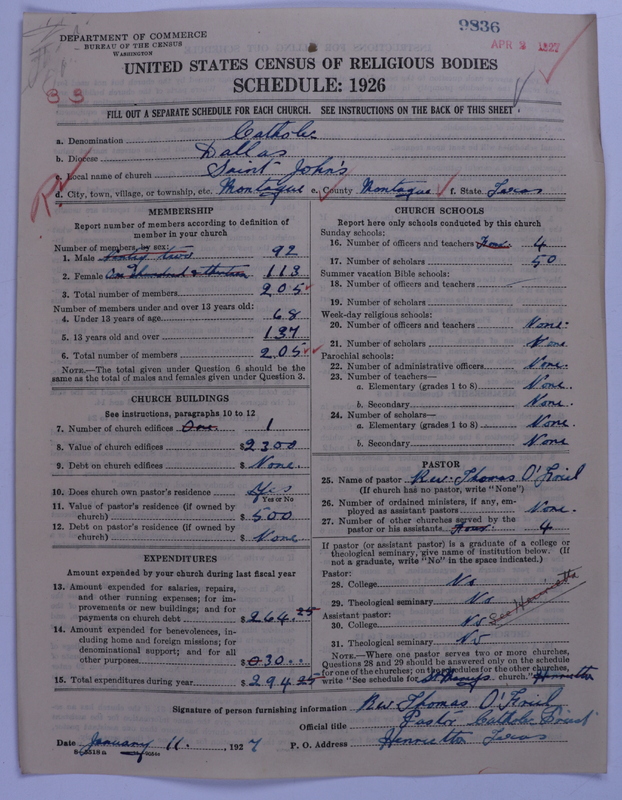 9836
DEPARTMENT OF COMMERCE
BUREAU OF THE CENSUS
WASHINGTON
APR 2 1927
UNITED STATES CENSUS OF RELIGIOUS BODIES
SCHEDULE: 1926
33
FILL OUT A SEPARATE SCHEDULE FOR EACH CHURCH. SEE INSTRUCTIONS ON THE BACK OF THIS SHEET
a. Denomination Catholic
b. Diocese Dallas
c. Local name of church Saint John's
d. City, town, village, or township, etc. Montague e. County Montague f. State Texas
MEMBERSHIP
Report number of members according to definition of
member in your church
Number of members, by sex:
1. Male ninety two 92
2. Female One hundred & thirteen 113
3. Total number of members 205
Number of members under and over 13 years old:
4. Under 13 years of age 68
5. 13 years old and over 137
6. Total number of members 205
NOTE.—The total given under Question 6 should be the
same as the total of males and females given under Question 3.
CHURCH BUILDINGS
See instructions, paragraphs 10 to 12
7. Number of church edifices One. 1
8. Value of church edifices $2300
9. Debt on church edifices $None.
10. Does church own pastor's residence Yes
Yes or No
11. Value of pastor's residence (if owned by
church) $500
12. Debt on pastor's residence (if owned by
church) $None
EXPENDITURES
Amount expended by your church during last fiscal year
13. Amount expended for salaries, repairs,
and other running expenses; for im-
provements or new buildings; and for
payments on church debt $264.25
14. Amount expended for benevolences, in-
cluding home and foreign missions; for
denominational support; and for all
other purposes $30..
15. Total expenditures during year $294.25
CHURCH SCHOOLS
Report here only schools conducted by this church
Sunday schools:
16. Number of officers and teachers Four. 4
17. Number of scholars 50
Summer vacation Bible schools:
18. Number of officers and teachers
19. Number of scholars
Week-day religious schools:
20. Number of officers and teachers None.
21. Number of scholars None.
Parochial schools:
22. Number of administrative officers None.
23. Number of teachers—
a. Elementary (grades 1 to 8) None.
b. Secondary None.
24. Number of scholars—
a. Elementary (grades 1 to 8) None.
b. Secondary None
PASTOR
25. Name of pastor Rev. Thomas O'Friel
(If church has no pastor, write "None")
26. Number of ordained ministers, if any, em-
ployed as assistant pastors None.
27. Number of other churches served by the
pastor or his assistants Four. 4
If pastor (or assistant pastor) is a graduate of a college or
theological seminary, give name of institution below. (If
not a graduate, write "No" in the space indicated.)
Pastor:
28. College No
29. Theological seminary No
Assistant pastor:
30. College No See Henrietta
31. Theological seminary No
NOTE.—Where one pastor serves two or more churches,
Questions 28 and 29 should be answered only on the schedule
for one of the churches; on the schedules for the other churches,
write "See schedule for St Mary's church." Henrietta
Signature of person furnishing information Rev Thomas O'Friel
Official title Pastor Catholic Priest
Date January 11. 1927 P. O. Address Henrietta Texas